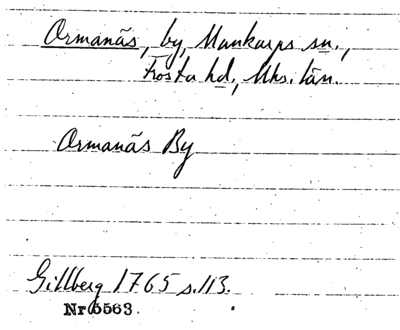 Ormanäs, by, Munkarps sn.,
Frosta hd., Mhs. län.
Ormanäs By
Gillberg 1765 s. 113.
Nr 5563.